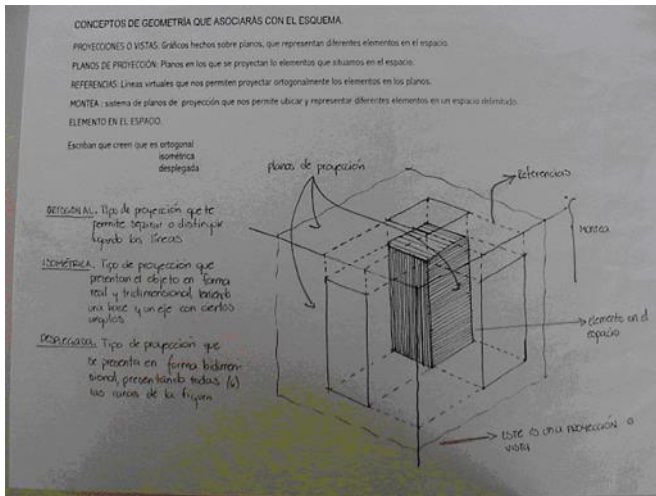 CONCEPTOS DE GEOMETRÍA QUE ASOCIARÁS CON EL ESQUEMA.
PROYECCIONES O VISTAS: Gráficos hechos sobre planos, que representan diferentes elementos en el espacio.
PLANOS DE PROYECCIÓN: Planos en los que se proyectan lo elementos que situamos en el espacio.
REFERENCIAS: Líneas virtuales que nos permiten proyectar ortogonalmente los elementos en los planos.
MONTEA : sistema de planos de proyección que nos permite ubicar y representar diferentes elementos en un espacio delimitado
ELEMENTO EN EL ESPACIO.
Escriban que creen que es ortogonal
isométrica
desplegada
planos de proyección
Referencias
Montea
ORTOGONAL. Tipo de proyección que te
permite separar o distinguir
las líneas
ISOMÉTRICA. Tipo de proyección que
presentan el objeto en forma
real y tridimensional, teniendo
una base y un eje con ciertos
angulos
DESPLEGADA. Tipo de proyección que
se presenta en forma bidimen-
sional, presentando todas (6)
las caras de la figura
elemento en el
espacio
ESTE ES UNA PROYECCIÓN O
VISTA